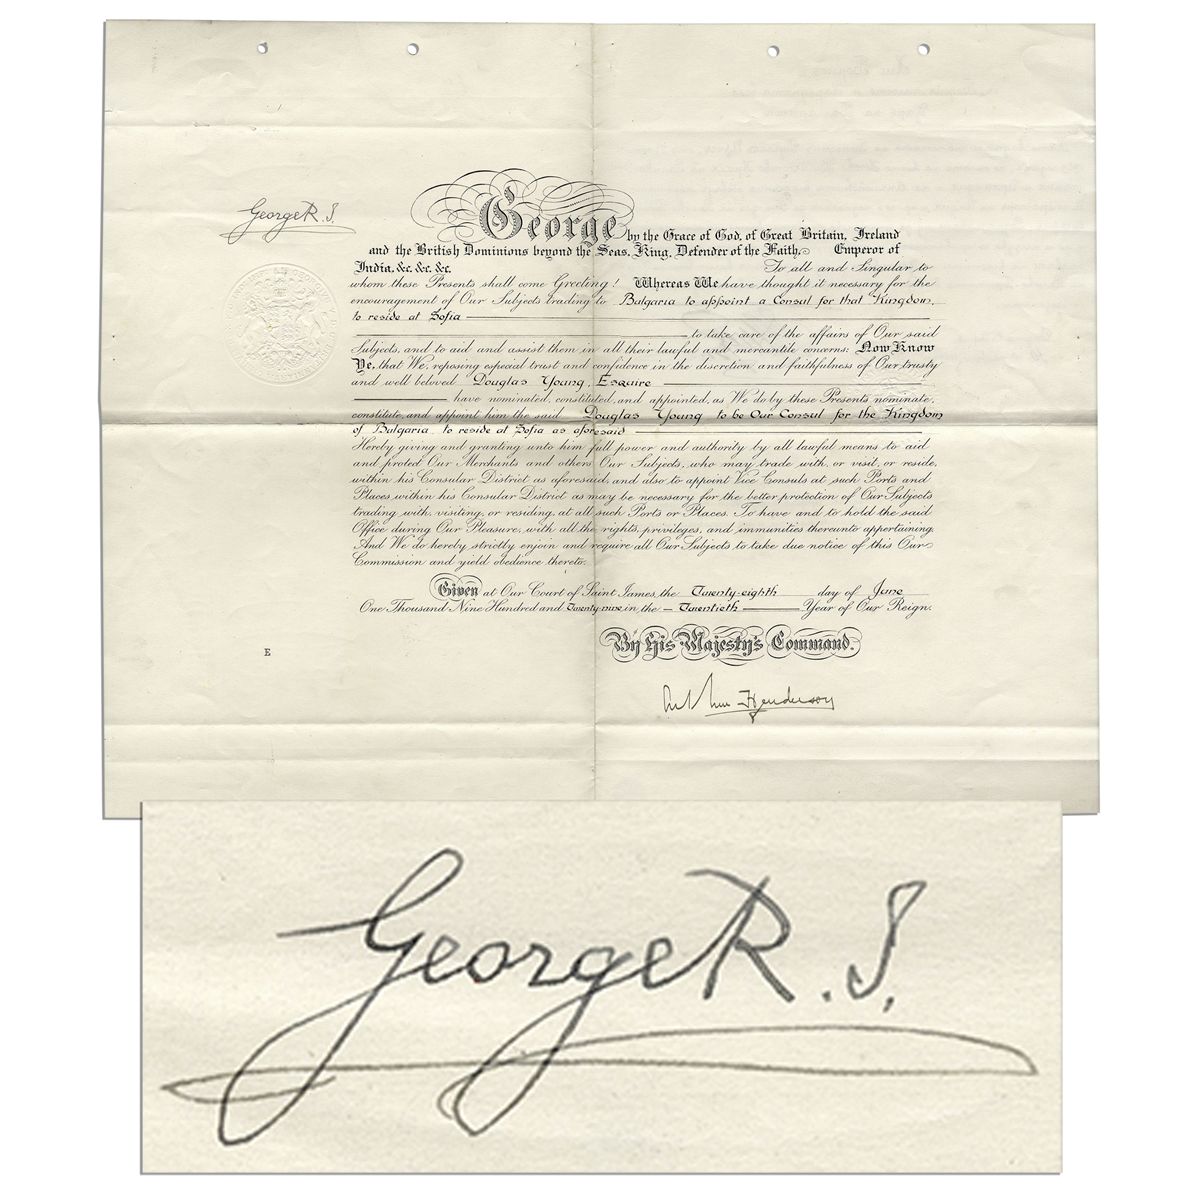 George R. I.
George by the Grace of God, of Great Britain, Ireland
and the British Dominions beyond the Seas, King, Defender of the Faith, Emperor of
India, &c. &c. &c. To all and Singular to
whom these Presents shall come Greeting! Whereas We have thought it necessary for the
encouragement of Our Subjects trading to Bulgaria to appoint a Consul for that Kingdom,
to reside at Sofia
to take care of the affairs of Our said
Subjects, and to aid and assist them in all their lawful and mercantile concerns: Now Know
Ye, that We, reposing especial trust and confidence in the discretion and faithfulness of Our trusty
and well beloved Douglas Young, Esquire
have nominated, constituted and appointed, as We do by these Presents nominate,
constitute, and appoint him the said Douglas Young to be Our Consul for the Kingdom
of Bulgaria to reside at Sofia as aforesaid
Hereby giving and granting unto him full power and authority by all lawful means to aid
and protect Our Merchants and others Our Subjects, who may trade with, or visit, or reside,
within his Consular District as aforesaid, and also to appoint Vice Consuls at such Ports and
Places, within his Consular District as may be necessary for the better protection of Our Subjects
trading with, visiting, or residing, at all such Ports or Places. To have and to hold the said
Office during Our Pleasure, with all the rights, privileges, and immunities thereunto appertaining.
And We do hereby strictly enjoin and require all Our Subjects to take due notice of this Our
Commission and yield obedience thereto.
Given at Our Court of Saint James, the Twenty-eighth day of June
One Thousand Nine Hundred and Twenty nine in the Twentieth Year of Our Reign.
By His Majesty's Command.
E
Arthur Henderson
George R. I.